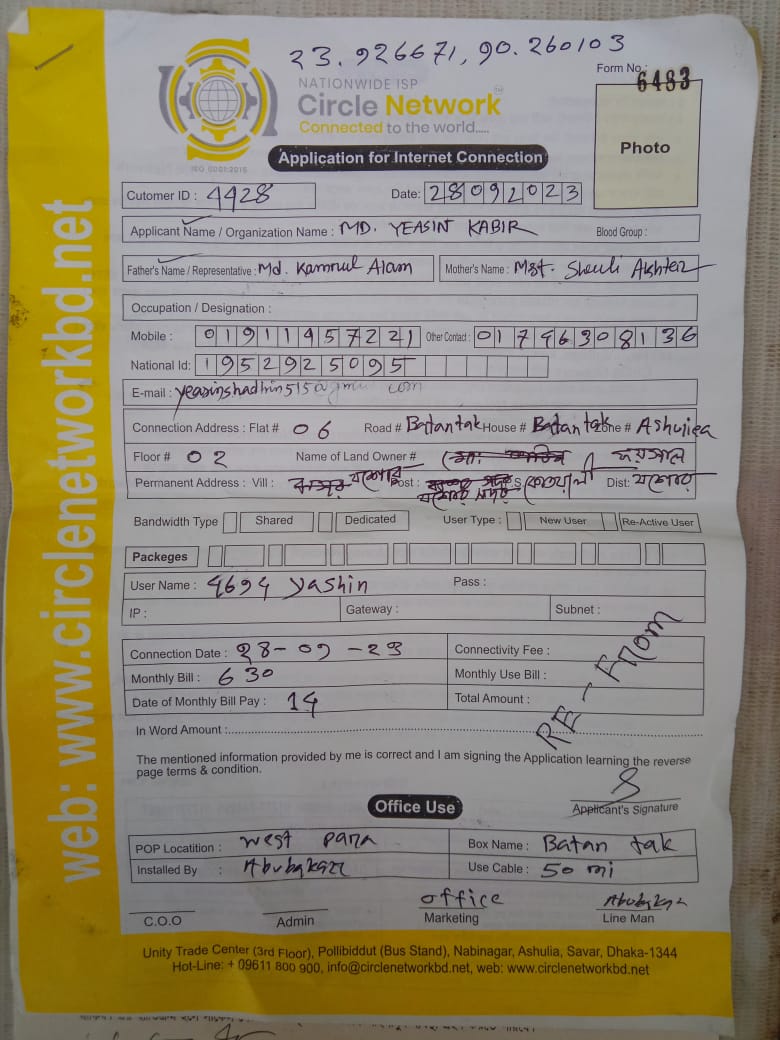 23.926671, 90.260103
NATIONWIDE ISP
Circle Network
Connected to the world.....
ISO 9001:2015
Form No.: 6483
Photo
Application for Internet Connection
Cutomer ID : 4428 Date: 28092023
Applicant Name / Organization Name : MD. YEASIN KABIR Blood Group :
Father's Name / Representative : Md. Kamrul Alam Mother's Name : Mst. Sheuli Akhter
Occupation / Designation :
Mobile : 01911457221 Other Contact : 01746308136
National Id: 1952925095
E-mail : yeasinshadhin515@ com
Connection Address : Flat # 06 Road # Batantak House # Batan tak Zone # Ashuliea
Floor # 02 Name of Land Owner #
Permanent Address : Vill : যশোর Post : যশোর সদর P.S: Dist: যশোর
Bandwidth Type Shared Dedicated User Type : New User Re-Active User
Packeges
User Name : 4694 Yashin Pass :
IP : Gateway : Subnet :
Connection Date : 28-09-23 Connectivity Fee :
Monthly Bill : 630 Monthly Use Bill :
Date of Monthly Bill Pay : 14 Total Amount :
RE-From
In Word Amount :
The mentioned information provided by me is correct and I am signing the Application learning the reverse
page terms & condition.
Applicant's Signature
Office Use
POP Locatition : West para Box Name : Batan tak
Installed By : Abubakar Use Cable : 50 mi
office Abubakar
C.O.O Admin Marketing Line Man
Unity Trade Center (3rd Floor), Pollibiddut (Bus Stand), Nabinagar, Ashulia, Savar, Dhaka-1344
Hot-Line: + 09611 800 900, info@circlenetworkbd.net, web: www.circlenetworkbd.net
web: www.circlenetworkbd.net